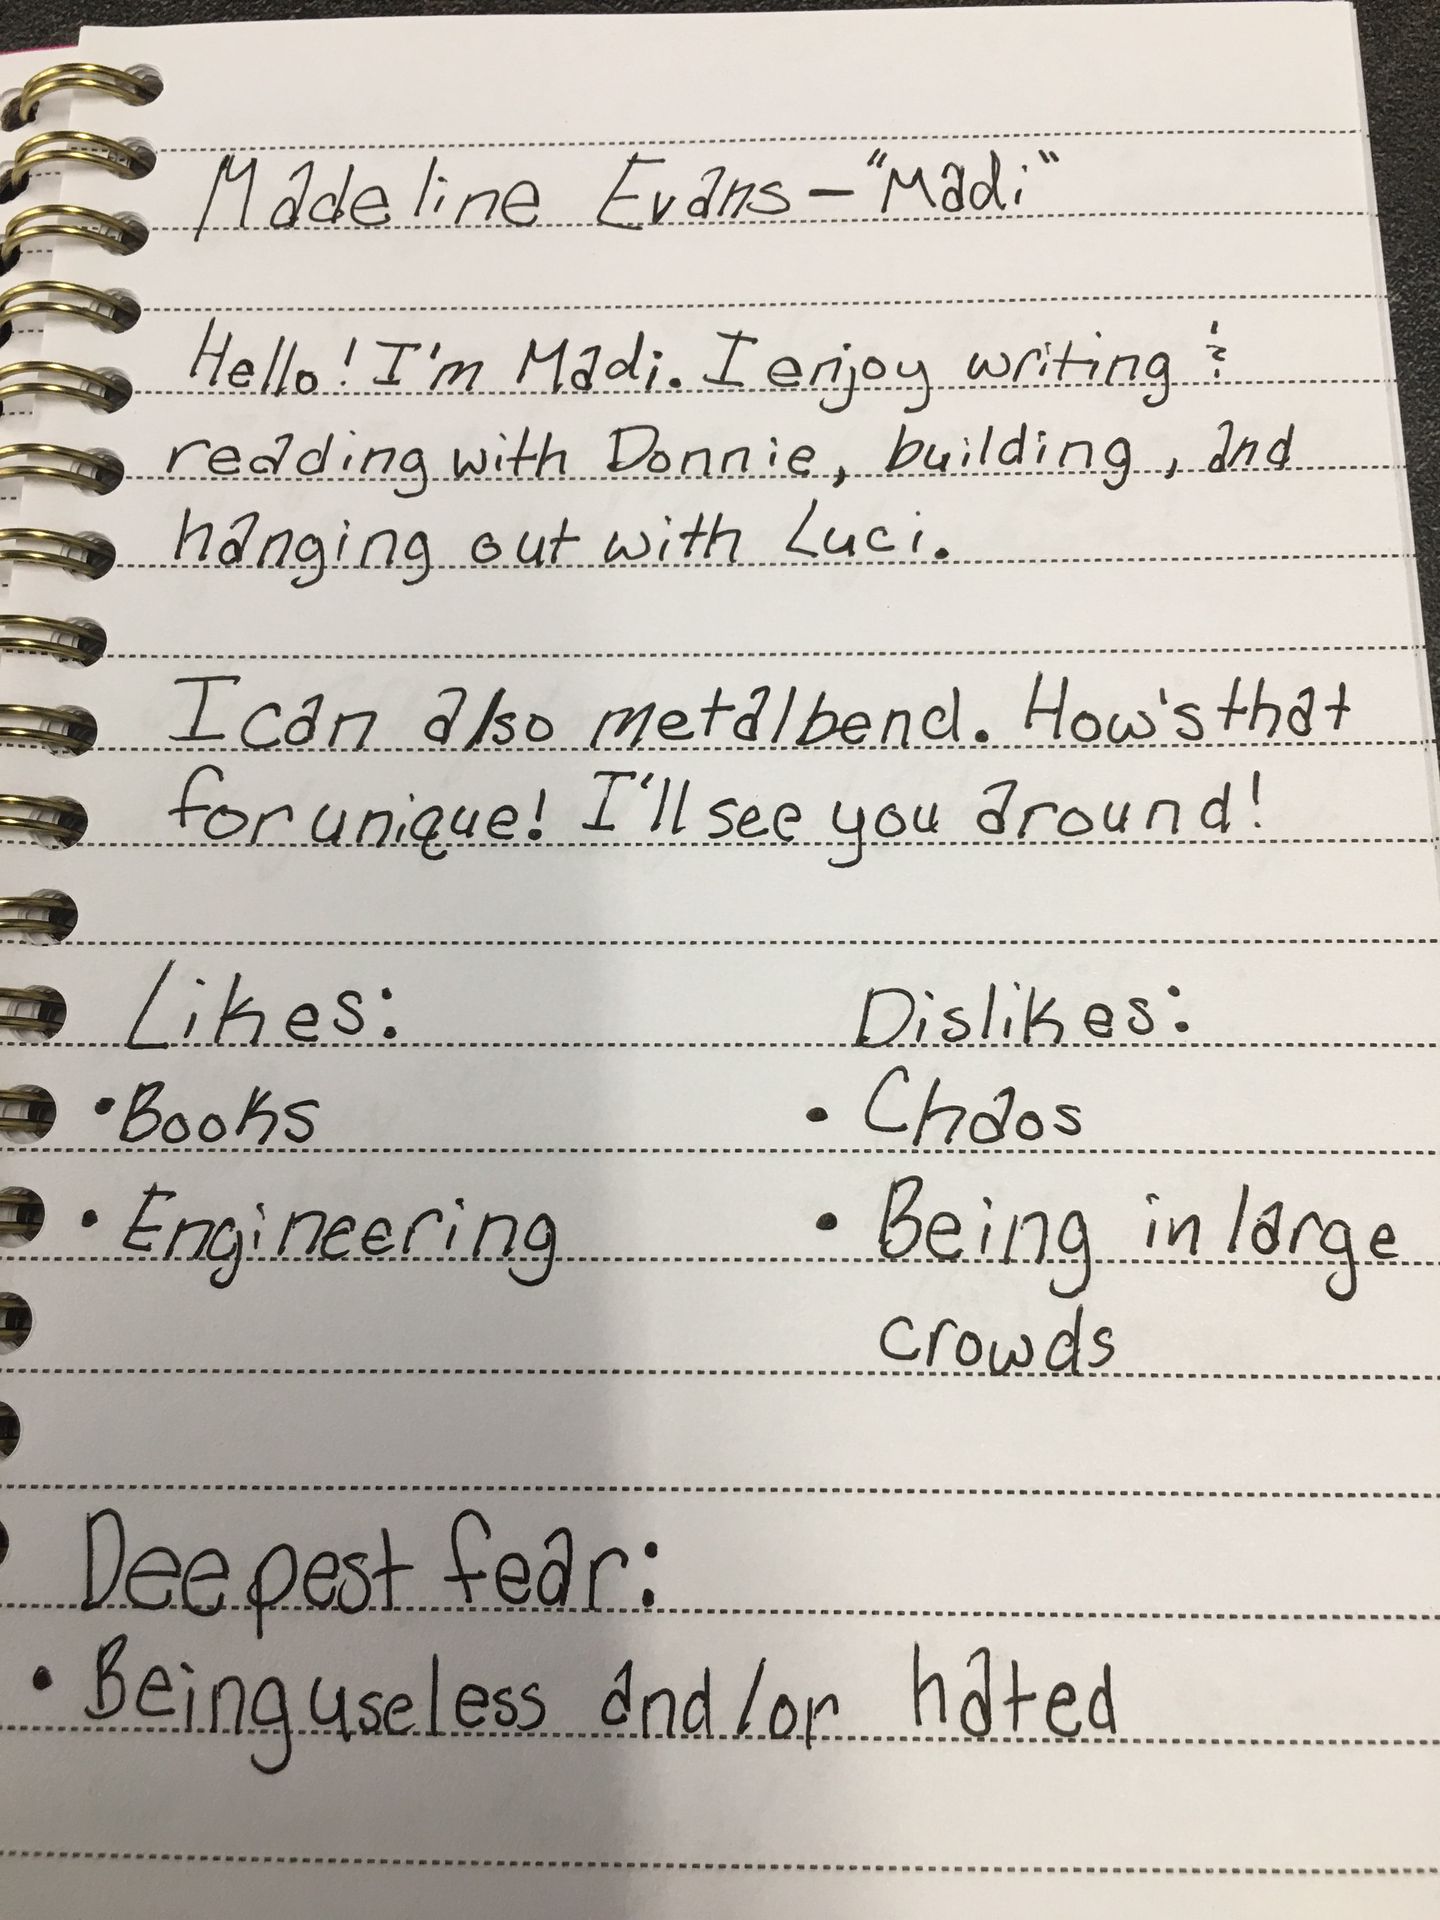 Madeline Evans - "Madi"
Hello! I'm Madi. I enjoy writing &
reading with Donnie, building, and
hanging out with Luci.
I can also metalbend. How's that
for unique! I'll see you around!
Likes: Dislikes:
• Books • Chaos
• Engineering • Being in large
crowds
Deepest fear:
• Being useless and/or hated